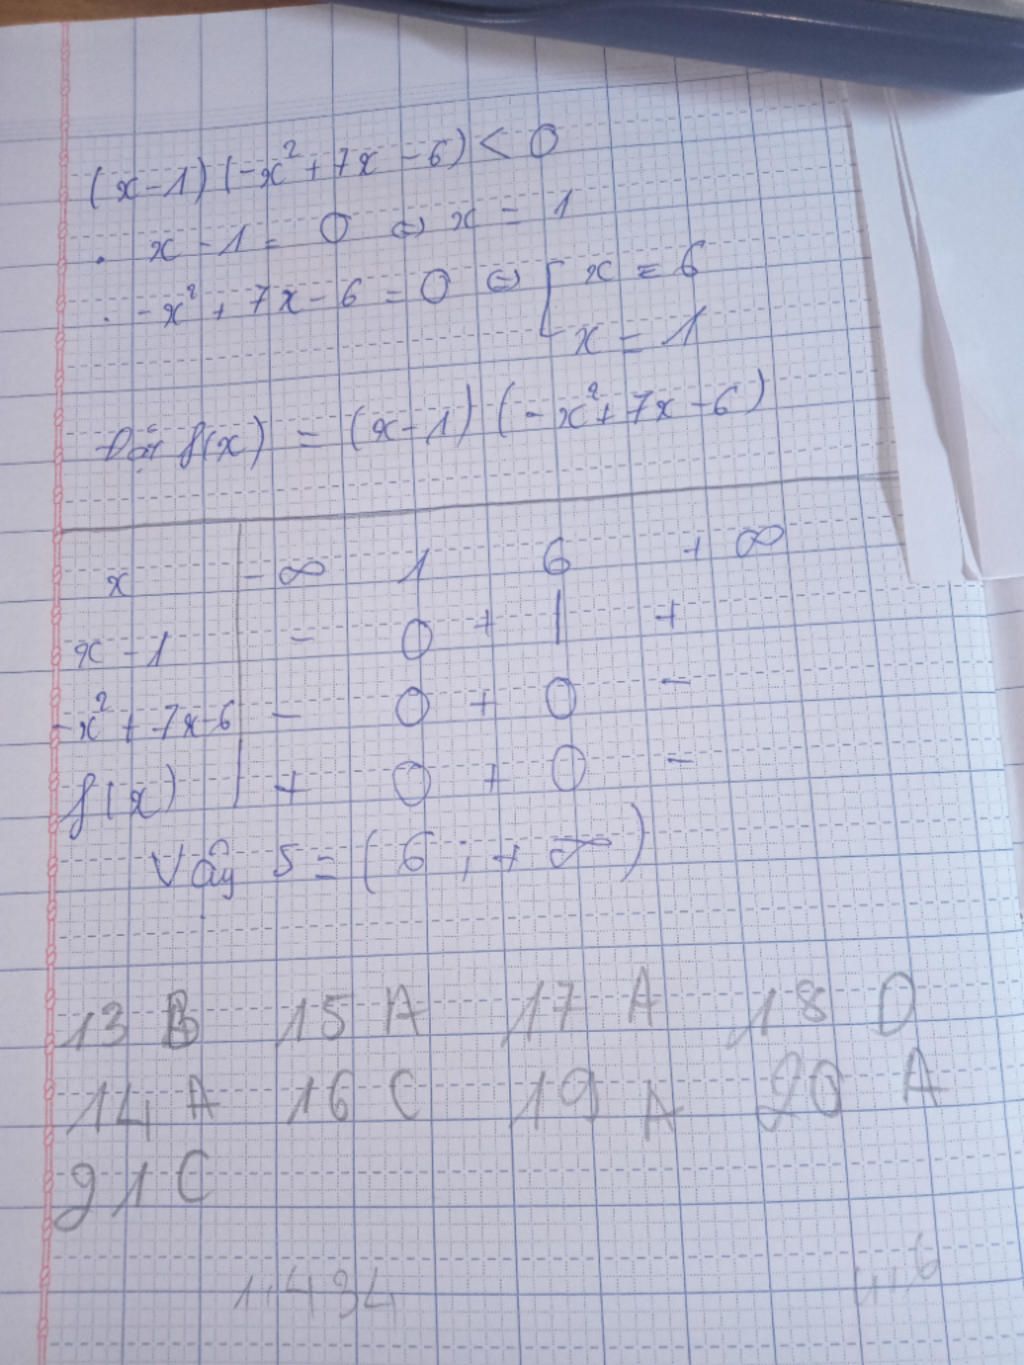 (x-1)(-x²+7x-6)<0
. x-1=0 ⇔ x=1
. -x²+7x-6=0 ⇔ [ x=6
x=1
Đặt f(x) = (x-1)(-x²+7x-6)
x -∞ 1 6 +∞
x-1 - 0 + | +
-x²+7x-6 - 0 + 0 -
f(x) + 0 + 0 -
Vậy S=(6;+∞)
13 B 15 A 17 A 18 D
14 A 16 C 19 A 20 A
21 C